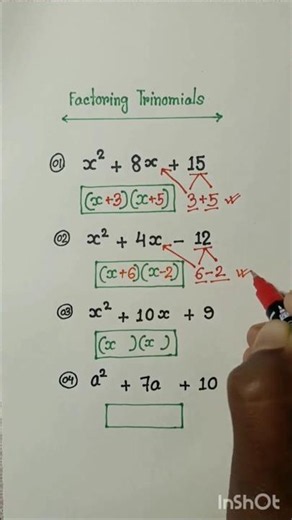 Factoring Trinomials
01 x² + 8x + 15
(x+3)(x+5) 3+5
02 x² + 4x - 12
(x+6)(x-2) 6-2
03 x² + 10x + 9
(x )(x )
04 a² + 7a + 10
InShOt